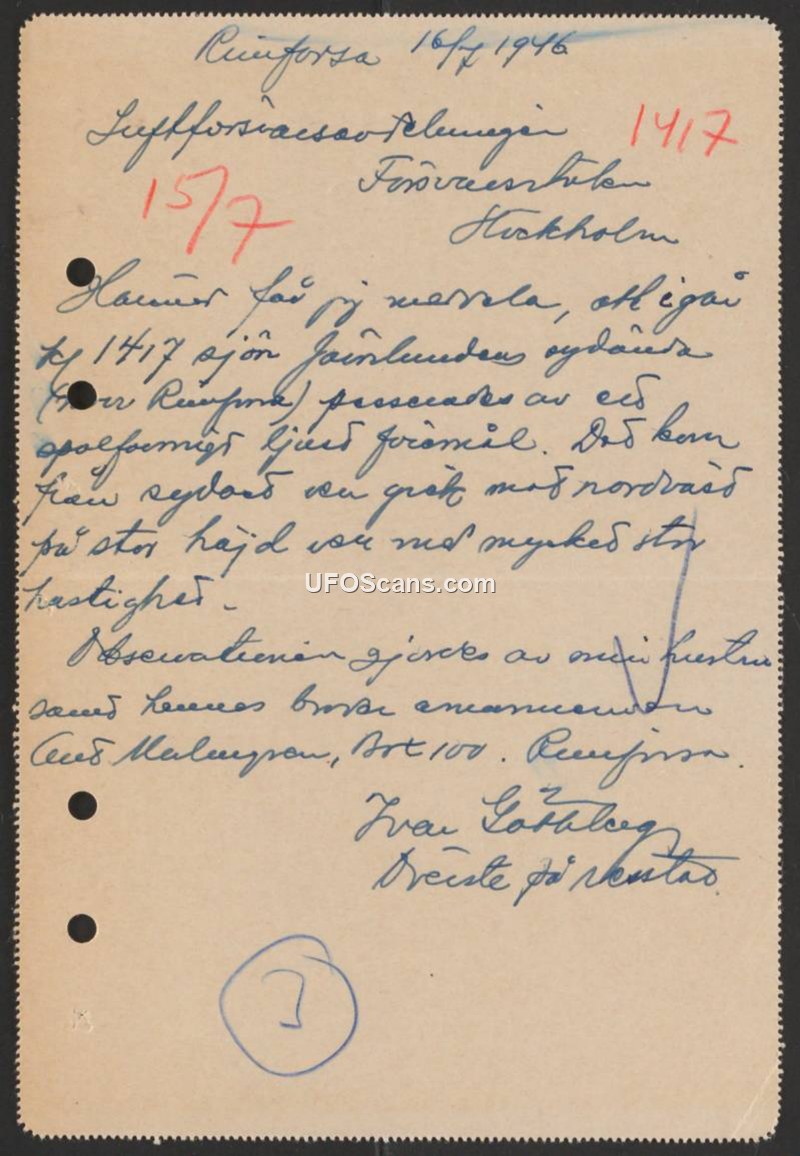 Rimforsa 16/7 1946
Luftförsvarsavdelningen
1417
Försvarsstaben
15/7
Stockholm
Härmed får jag meddela, att igår
kl 1417 sjön Järnlundens sydända
(över Rimforsa) passerades av ett
spolformigt ljust föremål. Det kom
från sydost en gick mot nordväst
på stor höjd en med mycket stor
hastighet.
UFOScans.com
Observationen gjordes av min hustru
samt hennes broder
Malmgren, Box 100. Rimforsa.
Ivar Göthberg
på
J